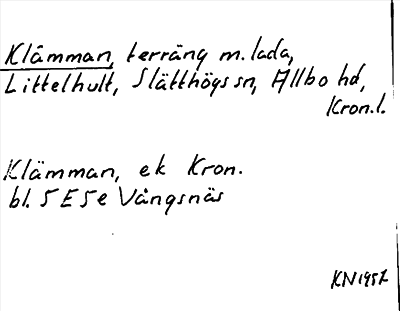 Klämman, terräng m. lada,
Littelhult, Slätthögs sn, Allbo hd,
Kron.l.
Klämman, ek Kron.
bl. 5 E 5 e Vångsnäs
KN 1957